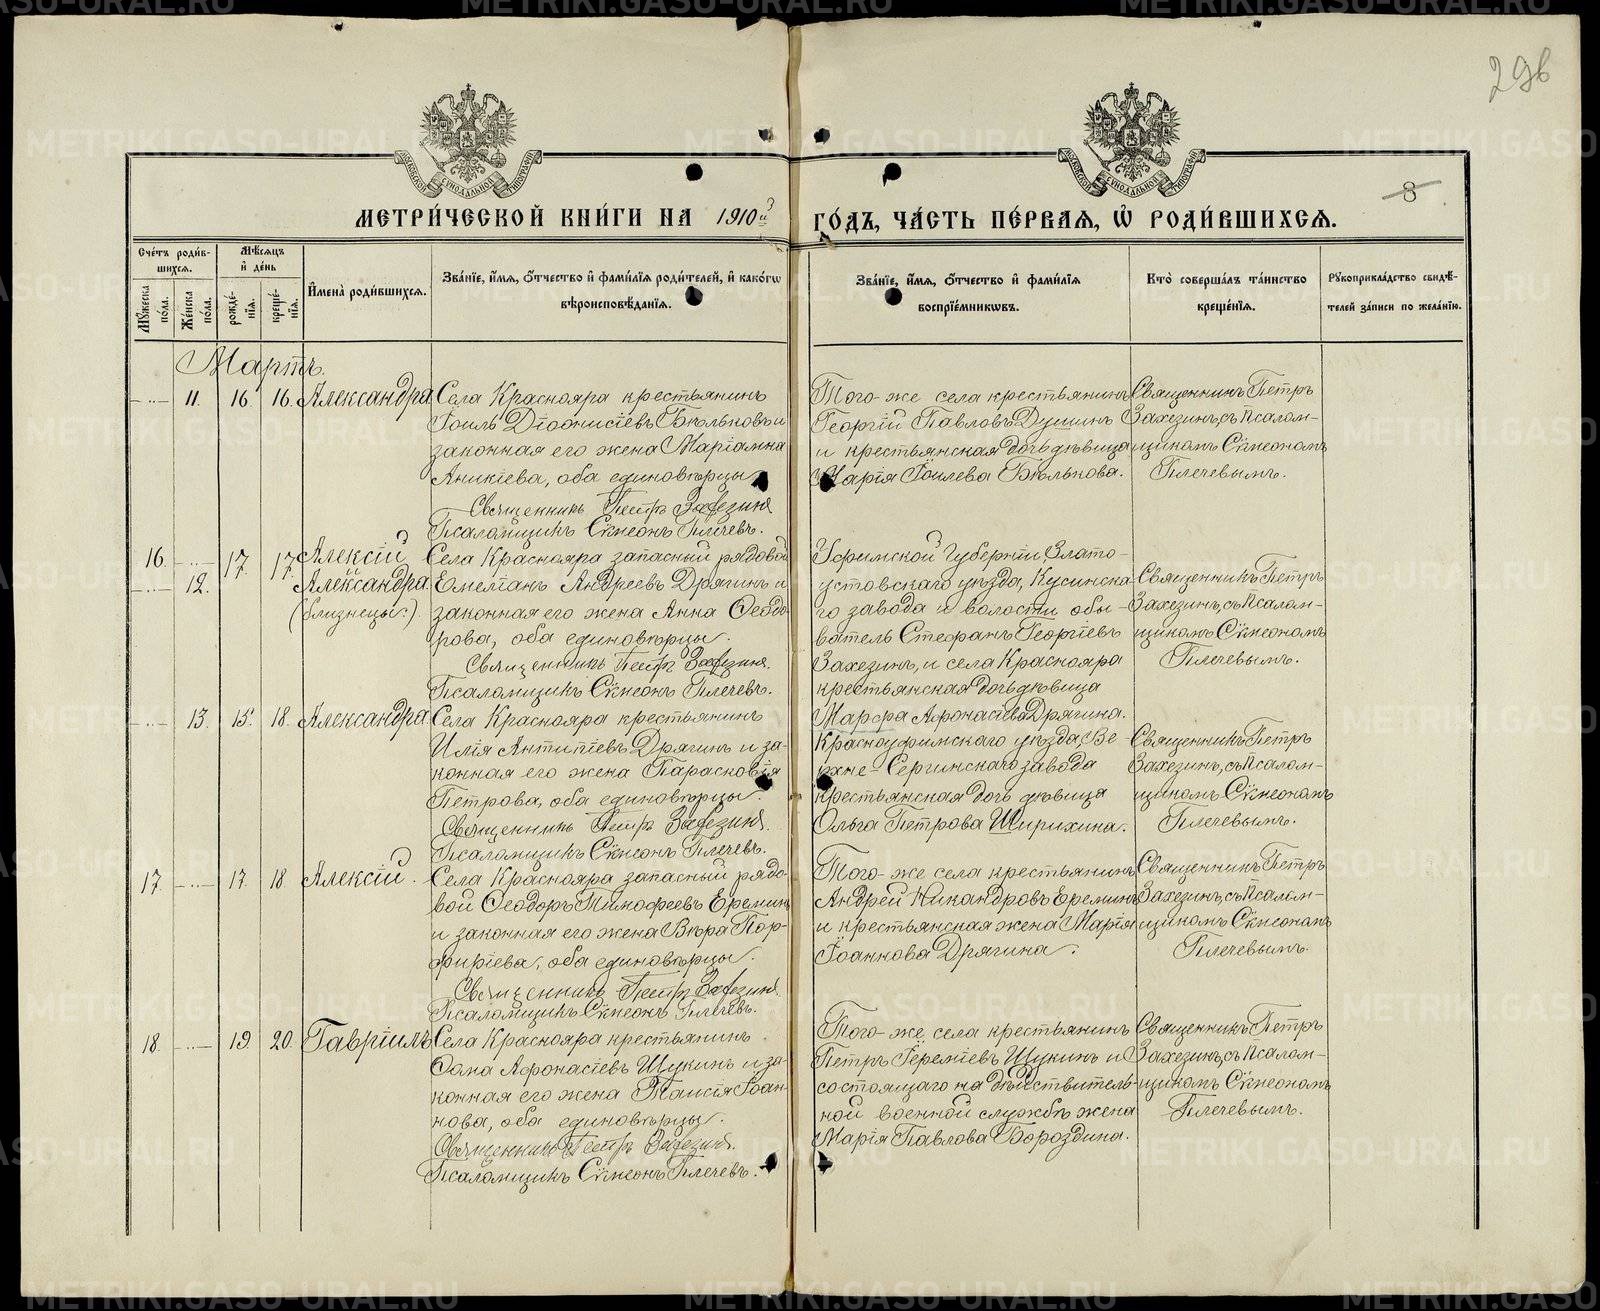 296
8
МОСКОВСКОЙ СѴНОДАЛЬНОЙ ТИПОГРАФІИ
МОСКОВСКОЙ СѴНОДАЛЬНОЙ ТИПОГРАФІИ
МЕТРИ́ЧЕСКОЙ КНИ́ГИ НА 1910й ГО́ДЪ, ЧА́СТЬ ПЕ́РВАЯ, Ѡ҆ РОДИ́ВШИХСЯ.
Сче́тъ роди́в-
шихся.
Мѣ́сяцъ
и҆ де́нь
Мꙋ́жеска по́ла.
Же́нска по́ла.
рожде́-
нїя.
креще́-
нїя.
И҆мена̀ роди́вшихся.
Зва́нїе, и҆́мя, ѻ҆́тчество и҆ фами́лїя роди́телей, и҆ како́гѡ
вѣроисповѣ́данїя.
Зва́нїе, и҆́мя, ѻ҆́тчество и҆ фами́лїя
воспрїе́мниковъ.
Кто̀ соверша́лъ та́инство
креще́нїя.
Рꙋкоприкла́дство свидѣ́-
телей за́писи по жела́нїю.
Мартъ.
11. 16. 16. Александра
Села Краснояра крестьянинъ
Іоиль Діонисіевъ Бѣльковъ и
законная его жена Маріамна
Аникіева, оба единовѣрцы.
Священникъ Петръ Захезинъ
Псаломщикъ Сѵмеонъ Плечевъ.
Того-же села крестьянинъ
Георгій Павловъ Душинъ
и крестьянская дочь дѣвица
Марія Іоилева Бѣлькова.
Священникъ Петръ
Захезинъ, съ псалом-
щикомъ Сѵмеономъ
Плечевымъ.
16. 17. 17. Алексій
12. Александра
(близнецы).
Села Краснояра запасный рядовой
Емеліанъ Андреевъ Дрягинъ и
законная его жена Анна Ѳеодо-
рова, оба единовѣрцы.
Священникъ Петръ Захезинъ.
Псаломщикъ Сѵмеонъ Плечевъ.
Уфимской Губерніи Злато-
устовскаго уѣзда, Кусинска-
го завода и волости обы-
ватель Стефанъ Георгіевъ
Захезинъ, и села Краснояра
крестьянская дочь дѣвица
Марфа Афонасіева Дрягина.
Священникъ Петръ
Захезинъ, съ псалом-
щикомъ Сѵмеономъ
Плечевымъ.
13. 15. 18. Александра
Села Краснояра крестьянинъ
Илія Антипіевъ Дрягинъ и за-
конная его жена Параскевія
Петрова, оба единовѣрцы.
Священникъ Петръ Захезинъ.
Псаломщикъ Сѵмеонъ Плечевъ.
Красноуфимскаго уѣзда, Ве-
рхне-Сергинскаго завода
крестьянская дочь дѣвица
Ольга Петрова Ширихина.
Священникъ Петръ
Захезинъ, съ псалом-
щикомъ Сѵмеономъ
Плечевымъ.
17. 17. 18. Алексій.
Села Краснояра запасный рядо-
вой Ѳеодоръ Тимофеевъ Ереминъ
и законная его жена Вѣра Пор-
фиріева, оба единовѣрцы.
Священникъ Петръ Захезинъ.
Псаломщикъ Сѵмеонъ Плечевъ.
Того-же села крестьянинъ
Андрей Никандровъ Ереминъ
и крестьянская жена Марія
Іоаннова Дрягина.
Священникъ Петръ
Захезинъ, съ псалом-
щикомъ Сѵмеономъ
Плечевымъ.
18. 19. 20. Гавріилъ
Села Краснояра крестьянинъ
Ѳома Афонасіевъ Щукинъ и за-
конная его жена Таисія Іоан-
нова, оба единовѣрцы.
Священникъ Петръ Захезинъ.
Псаломщикъ Сѵмеонъ Плечевъ.
Того-же села крестьянинъ
Петръ Іереміевъ Щукинъ и
состоящаго на дѣйствитель-
ной военной службѣ жена
Марія Павлова Бороздина.
Священникъ Петръ
Захезинъ, съ псалом-
щикомъ Сѵмеономъ
Плечевымъ.
METRIKI.GASO-URAL.RU